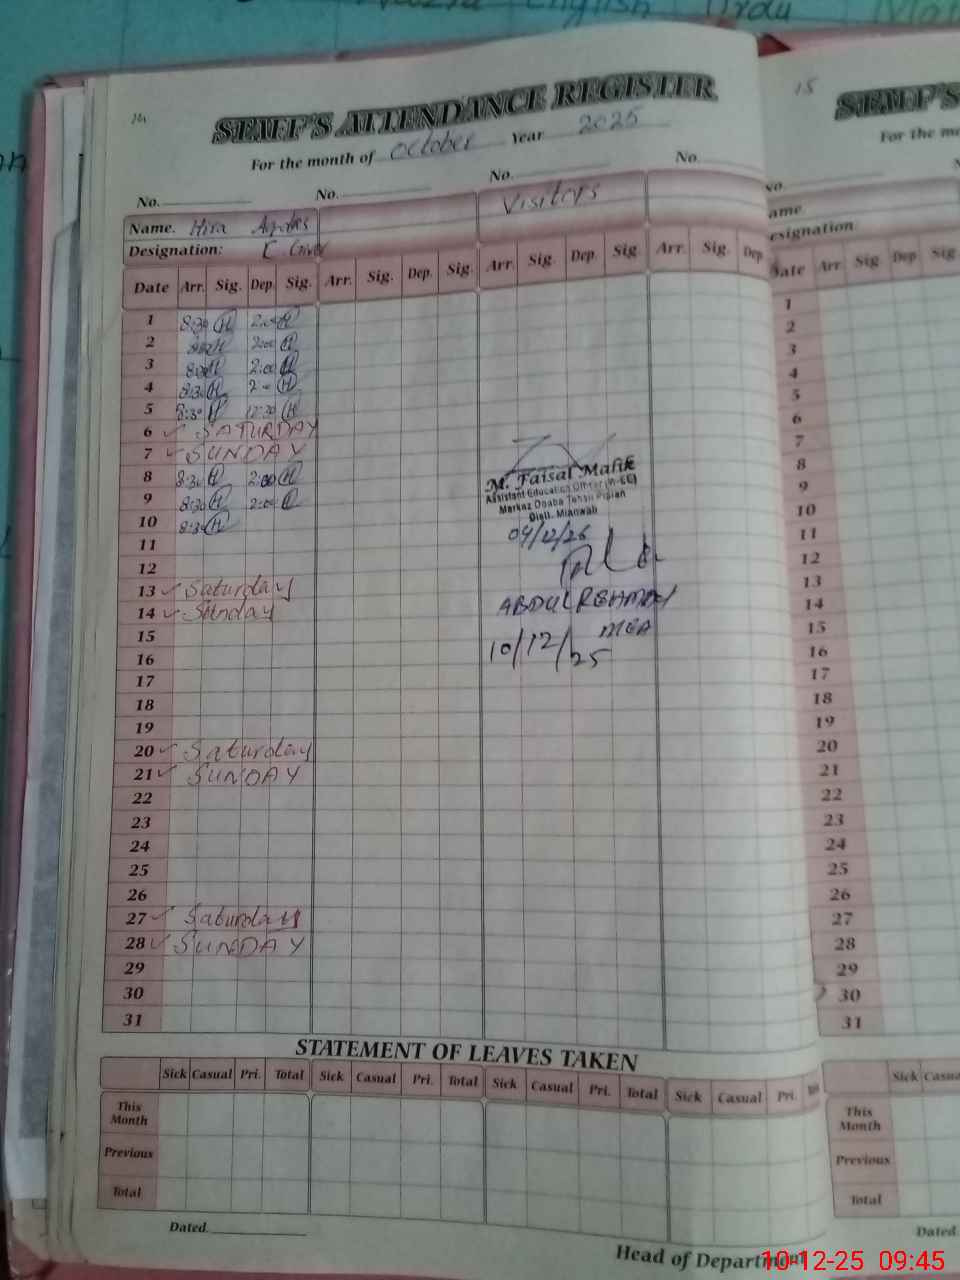 English Urdu
STAFF'S ATTENDANCE REGISTER
For the month of October Year 2025
No. No. No. No.
Name. Hira Visitors
Designation: C. Giver
Date Arr. Sig. Dep. Sig. Arr. Sig. Dep. Sig. Arr. Sig. Dep. Sig. Arr. Sig. Dep
1 8:30 H 2:00 H
2 H 2:00 H
3 8:30 H 2:00 H
4 8:30 H H
5 8:30 H 12:30 H
6 SATURDAY
7 SUNDAY
8 8:30 H 2:00 H
9 8:30 H 2:00 H
10 8:30 H
11
12
13 Saturday
14 Sunday
15
16
17
18
19
20 Saturday
21 SUNDAY
22
23
24
25
26
27 Saturday
28 SUNDAY
29
30
31
M. Faisal Malik
Assistant Education Officer (M-EE)
Markaz Doaba Tehsil Piplan
Distt. Mianwali
09/12/25
ABDUL REHMAN
MEA
10/12/25
STATEMENT OF LEAVES TAKEN
Sick Casual Pri. Total Sick Casual Pri. Total Sick Casual Pri. Total Sick Casual Pri.
This Month
Previous
Total
Dated.
Head of Department
15
STAFF'S
For the mo
No.
ame.
esignation:
Date Arr. Sig Dep Sig
1
2
3
4
5
6
7
8
9
10
11
12
13
14
15
16
17
18
19
20
21
22
23
24
25
26
27
28
29
30
31
Sick Casua
This Month
Previous
Total
Dated.
10-12-25 09:45